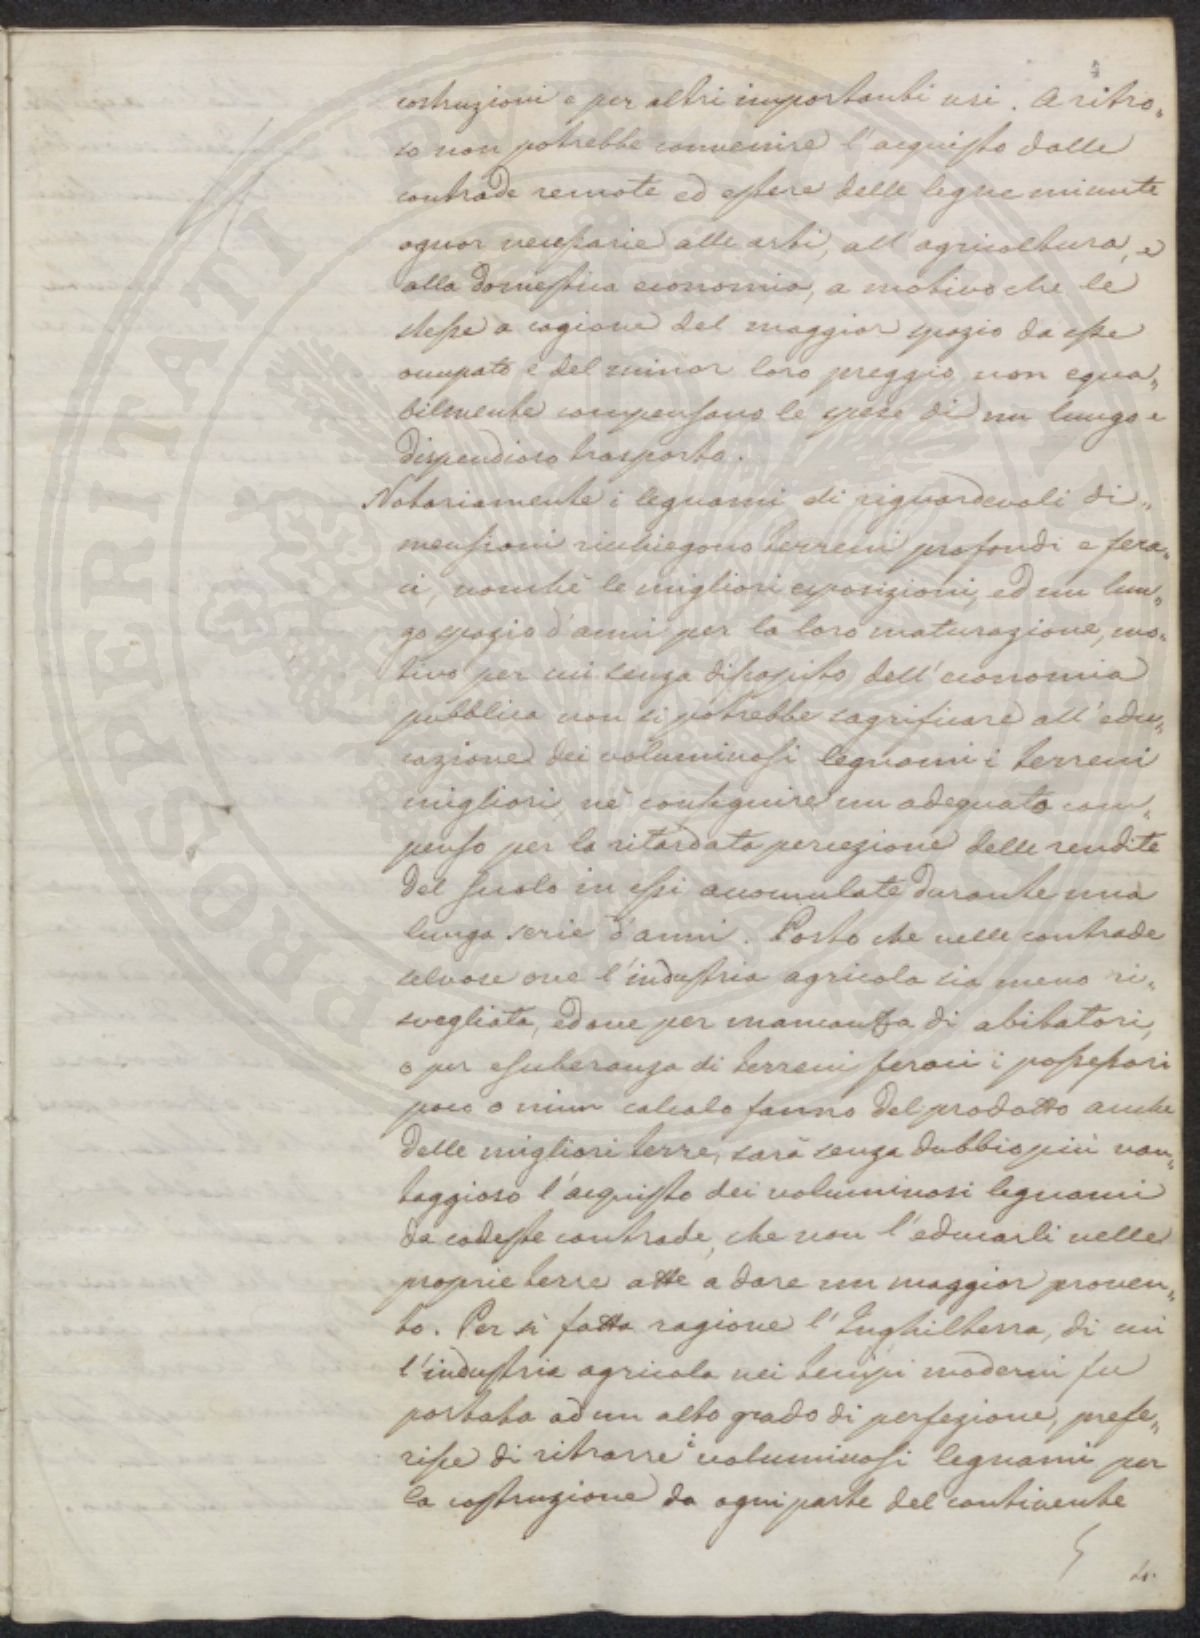 4
costruzioni e per altri importanti usi. A ritro„
so non potrebbe convenire l'acquisto dalle
contrade remote ed estere delle legne minute
ognor necessarie alle arti, all'agricoltura, e
alla domestica economia, a motivo che le
stesse a cagione del maggior spazio da esse
occupato e del minor loro preggio non equa„
bilmente compensano le spese di un lungo e
dispendioso trasporto.
Notoriamente i legnami di riguardevoli di„
mensioni richiegono terreni profondi e fera„
ci, nonchè le migliori esposizioni, ed un lun„
go spazio d'anni per la loro maturazione, mo„
tivo per cui senza discapito dell'economia
pubblica non si potrebbe sagrificare all'edu„
cazione dei voluminosi legnami i terreni
migliori, nè conseguire un adeguato com„
penso per la ritardata percezione delle rendite
del suolo in essi accumulate durante una
lunga serie d'anni. Posto che nelle contrade
selvose ove l'industria agricola sia meno ri„
svegliata, ed ove per mancanza di abitatori,
o per esuberanza di terreni feraci i possessori
poco o niun calcolo fanno del prodotto anche
delle migliori terre, sarà senza dubbio più van„
taggioso l'acquisto dei voluminosi legnami
da codeste contrade, che non l'educarli nelle
proprie terre atte a dare un maggior proven„
to. Per sì fatta ragione l'Inghilterra, di cui
l'industria agricola nei tempi moderni fu
portata ad un alto grado di perfezione, prefe„
risse di ritrarre i voluminosi legnami per
la costruzione da ogni parte del continente
PROSPERITATI PUBLICAE